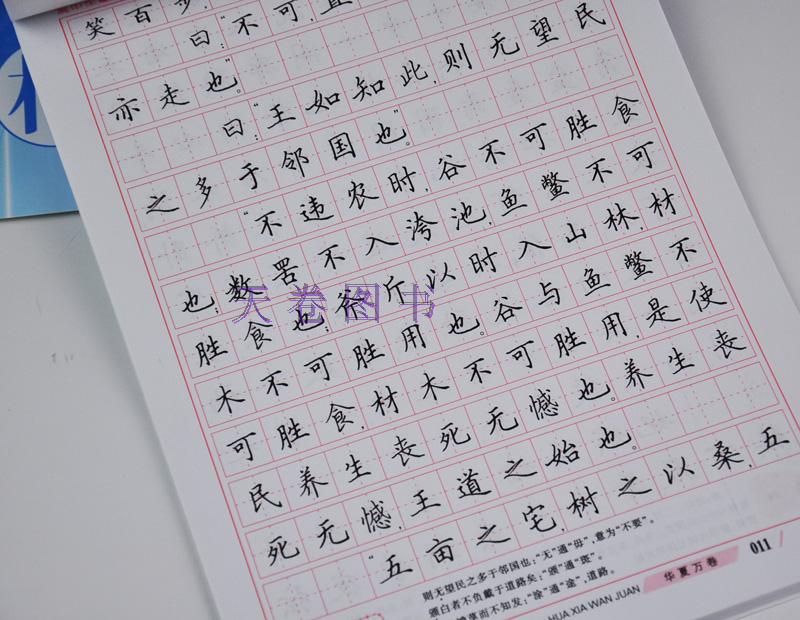 笑百步,
曰:"不可,直
亦走也"。
曰:"王如知此,则无望民
之多于邻国也"。
"不违农时,谷不可胜食
也;数罟不入洿池,鱼鳖不可
胜食也;斧斤以时入山林,材
木不可胜用也。谷与鱼鳖不
可胜食,材木不可胜用,是使
民养生丧死无憾也。养生丧
死无憾,王道之始也。
"五亩之宅,树之以桑,五
则无望民之多于邻国也:"无"通"毋",意为"不要"。
颁白者不负戴于道路矣:"颁"通"斑"。
而不知发:"涂"通"途",道路。
HUA XIA WAN JUAN
华夏万卷
011
天卷图书